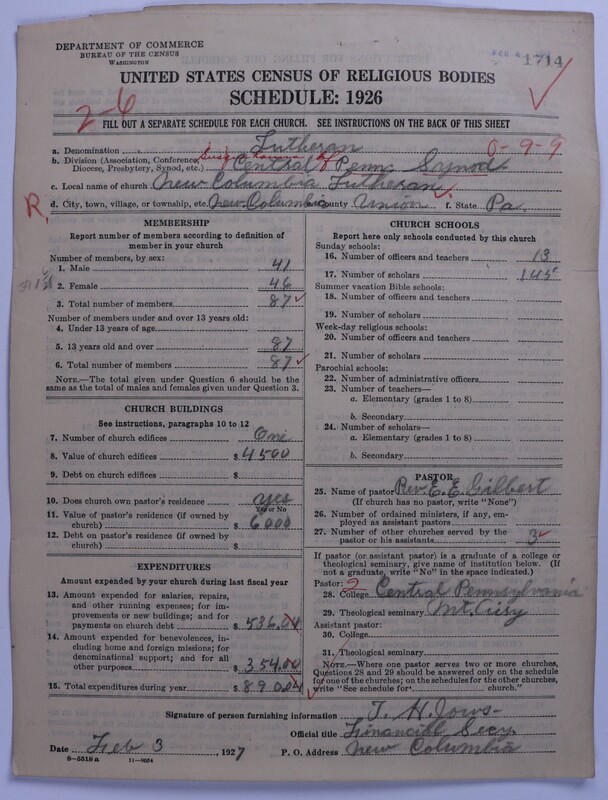 DEPARTMENT OF COMMERCE
BUREAU OF THE CENSUS
WASHINGTON
1714
UNITED STATES CENSUS OF RELIGIOUS BODIES
SCHEDULE: 1926
2-6
FILL OUT A SEPARATE SCHEDULE FOR EACH CHURCH. SEE INSTRUCTIONS ON THE BACK OF THIS SHEET
a. Denomination Lutheran 0-9-9
b. Division (Association, Conference, Diocese, Presbytery, Synod, etc.) Susquehanna of Central Penna Synod
c. Local name of church New Columbia Lutheran
R d. City, town, village, or township, etc. New Columbia County Union f. State Pa.
MEMBERSHIP
Report number of members according to definition of
member in your church
Number of members, by sex:
1. Male 41
2. Female 46
3. Total number of members 87
Number of members under and over 13 years old:
4. Under 13 years of age
5. 13 years old and over 87
6. Total number of members 87
NOTE.—The total given under Question 6 should be
the same as the total of males and females given under Question 3.
CHURCH BUILDINGS
See instructions, paragraphs 10 to 12
7. Number of church edifices One
8. Value of church edifices $ 4500
9. Debt on church edifices $
10. Does church own pastor's residence yes
Yes or No
11. Value of pastor's residence (if owned by
church) $ 6000
12. Debt on pastor's residence (if owned by
church) $
EXPENDITURES
Amount expended by your church during last fiscal year
13. Amount expended for salaries, repairs,
and other running expenses; for im-
provements or new buildings; and for
payments on church debt $ 536.04
14. Amount expended for benevolences,
including home and foreign missions; for
denominational support; and for all
other purposes $ 354.00
15. Total expenditures during year $ 890.04
CHURCH SCHOOLS
Report here only schools conducted by this church
Sunday schools:
16. Number of officers and teachers 13
17. Number of scholars 145
Summer vacation Bible schools:
18. Number of officers and teachers
19. Number of scholars
Week-day religious schools:
20. Number of officers and teachers
21. Number of scholars
Parochial schools:
22. Number of administrative officers
23. Number of teachers—
a. Elementary (grades 1 to 8)
b. Secondary
24. Number of scholars—
a. Elementary (grades 1 to 8)
b. Secondary
PASTOR
25. Name of pastor Rev. E. E. Gilbert
(If church has no pastor, write "None")
26. Number of ordained ministers, if any, em-
ployed as assistant pastors
27. Number of other churches served by the
pastor or his assistants 3
If pastor (or assistant pastor) is a graduate of a college or
theological seminary, give name of institution below. (If
not a graduate, write "No" in the space indicated.)
Pastor: 2
28. College Central Pennsylvania
29. Theological seminary Mt. Airy
Assistant pastor:
30. College
31. Theological seminary
NOTE.—Where one pastor serves two or more churches,
Questions 28 and 29 should be answered only on the schedule
for one of the churches; on the schedules for the other churches,
write "See schedule for church."
Signature of person furnishing information T. H.
Official title Financial Secy.
Date Feb 3, 1927 P. O. Address New Columbia
8-5518a 11-9054